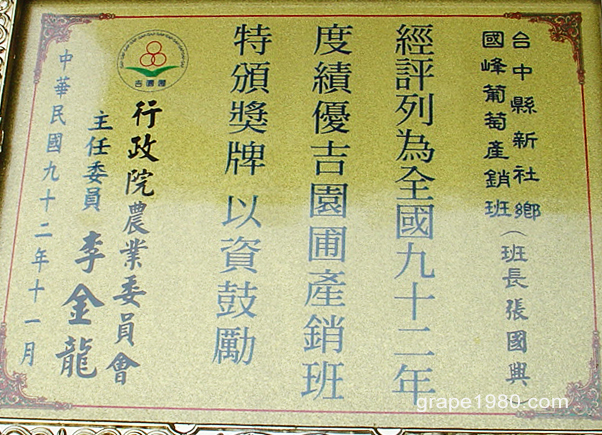 台中縣新社鄉
國峰葡萄產銷班(班長張國興
經評列為全國九十二年
度績優吉園圃產銷班
特頒獎牌 以資鼓勵
吉園圃
行政院農業委員會
主任委員 李金龍
中華民國九十二年十一月
grape1980.com